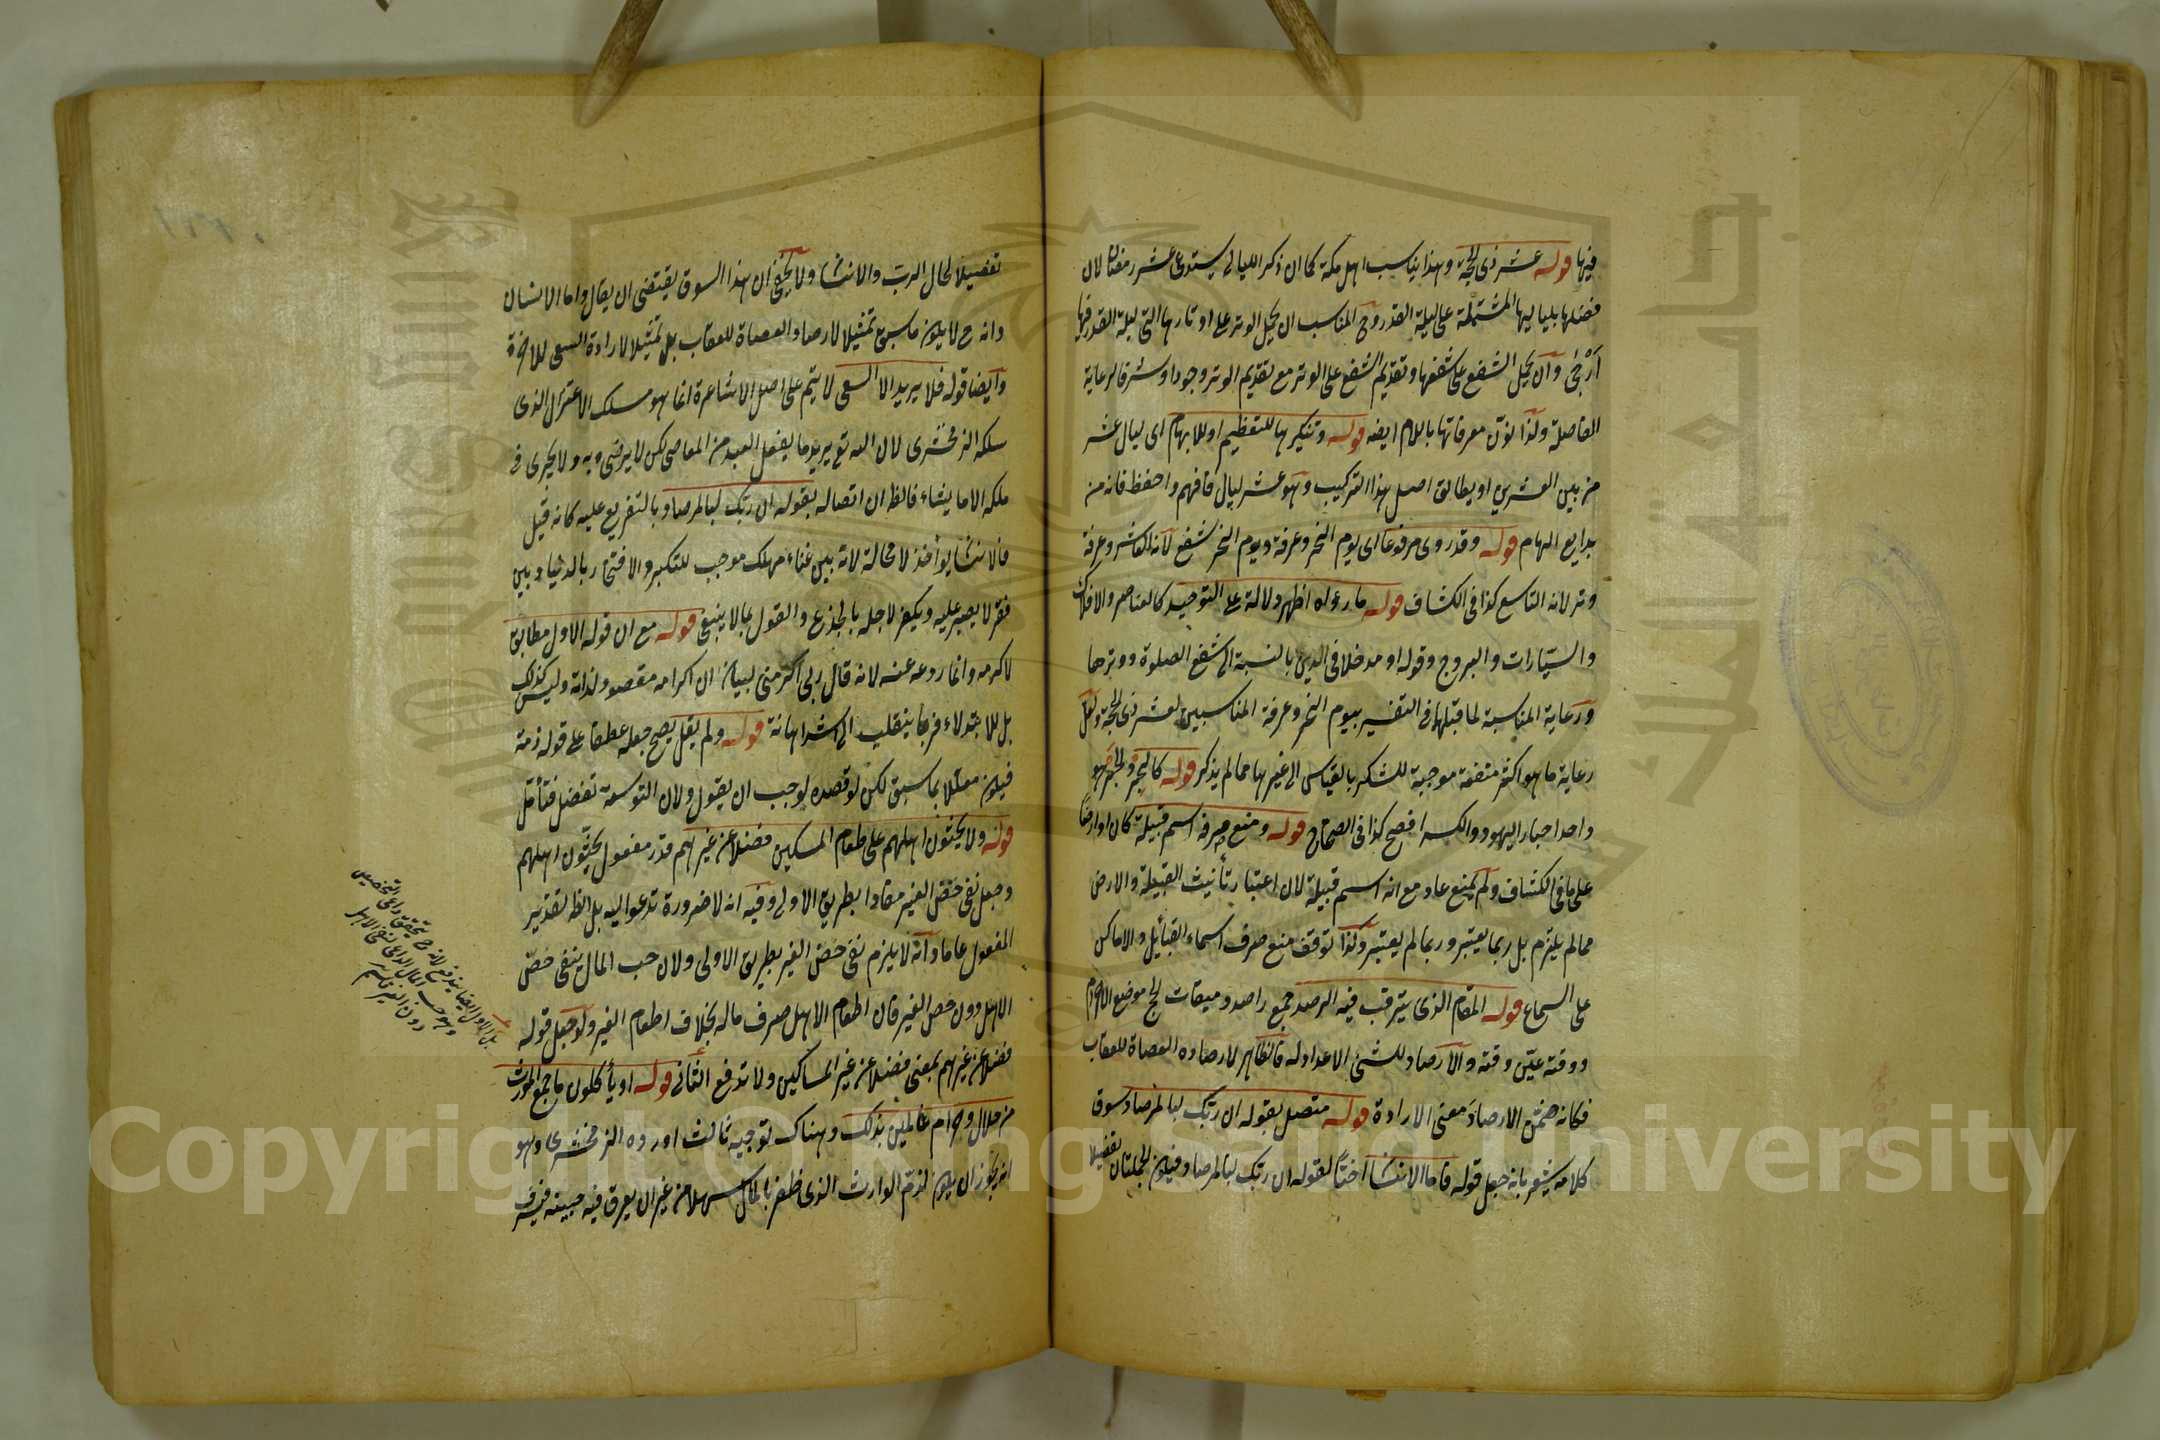 فيها قوله عشر ذى الحجة وهذا يناسب اهل مكة كما ان ذكر الليالى يستدعى عشر رمضان لان
فضلها بلياليها المشتملة على ليلة القدر وح المناسب ان يحمل الوتر على اوتارها التى ليلة القدر فيها
أرجى وان يحمل الشفع على شفعها وتقديم الشفع على الوتر مع تقديم الوتر وجودا وشرفا لرعاية
الفاصلة ولذا نون معرفاتها باللام ايضه قوله وتنكيرها للتعظيم او للابهام اى ليال عشر
من بين العشرين او يطابق اصل هذا التركيب وهو عشر ليال فافهم واحفظ فانه من
بدايع الهام قوله وقد روى مرفوعا اى يوم النحر وعرفة ويوم النحر شفع لانه العاشر وعرفة
وتر لانه التاسع كذا فى الكشاف قوله ما رءواه اظهر دلالة على التوحيد كالعناصر والافلاك
والسيارات والبروج وقوله او مدخلا فى الدين بالنسبة الى شفع الصلوة ووترها
ورعاية المناسبة لما قبلها فى التفسير بيوم النحر وعرفة المناسبين لعشر ذى الحجة ولعل
رعاية ما هو اكثر منفعة موجبة للشكر بالقياس الى غيرها مما لم يذكر قوله كالحبر والحبر هو
واحد احبار اليهود والكسر افصح كذا فى الصحاح قوله ومنع صرفه اسم قبيلة كان او ارضا
على ما فى الكشاف ولم يمنع عاد مع انه اسم قبيلة لان اعتبار تأنيث القبيلة والارض
مما لم يلتزم بل ربما يعتبر وربما لم يعتبر وكذا توقف منع صرف اسماء القبائل والاماكن
على السماع قوله المقام الذى يترقب فيه الرصد جمع راصد وميقات الحج موضع الاحرام
ووقته عين وقته والارصاد للشئ الاعداد له فالظاهر لارصاده العصاة للعقاب
فكانه ضمن الارصاد معنى الارادة قوله متصل بقوله ان ربك لبالمرصاد سوق
كلامه يشعر بانه جعل قوله فاما الانسا اختا لقوله ان ربك لبالمرصاد فيكون الجملتان تفصيلا
تفصيلا لحال الرب والانسا ولا يخفى ان هذا السوق يقتضى ان يقال واما الانسان
وانه ح لا يكون ما سبق تمثيلا لارصاد العصاة للعقاب بل تمثيلا لارادة السعى للاخرة
وايضا قوله فلا يريد الا السعى لا يتم على اصل الاشاعرة انما هو مسلك الاعتزال الذى
سلكه الزمخشرى لان الله تع يريد ما يفعل العبد من المعاصى لكن لا يرضى به ولا يجرى فى
ملكه الا ما يشاء فالظ ان اتصاله بقوله ان ربك لبالمرصاد بالتفريع عليه كانه قيل
فالانسا يوأخذ لا محالة لانه بين غناء مهلك موجب للتكبر والافتخار بالدنيا وبين
فقر لا يصبر عليه ويكفر لاجله بالجزع والقول بما لا ينبغى قوله مع ان قوله الاول مطابق
لاكرمه وانما ردعه عنه لانه قال ربى اكرمنى لبيان ان اكرامه مقصود لذاته وليس كذلك
بل للابتلاء فربما ينقلب الى اشد اهانة قوله ولم يقل يصح جعله عطفا على قوله ذمه
فيكون معللا بما سبق لكن لو قصده لوجب ان يقول ولان التوسعة تفضل فتأمل
قوله ولا يحثون اهلهم على طعام المسكين فضلا عن غيرهم قدر مفعول يحثون اهلهم
وجعل نفى حض الغير مفادا بطريق الاولى وفيه انه لا ضرورة تدعوا اليه بل الظ تقدير
المفعول عاما وانه لا يلزم نفى حض الغير بطريق الاولى ولان حب المال ينفى حض
الاهل دون حض الغير فان اطعام الاهل صرف ماله بخلاف اطعام الغير ولو جعل قوله
فضلا عن غيرهم بمعنى فضلا عن غير المساكين ولا تدفع الثانى قوله او يأكلون ما جمع المورث
من حلال وحرام عالمين بذلك وهناك توجيه ثالث اورده الزمخشرى وهو
انه يجوز ان يكون لذم الوارث الذى ظفر بالمال سهلا من غير ان يعرق فيه جبينه فيسرف
بل الاول ايضا يندفع لانه ح تحقق داعى التخصيص
وهو حب المال الداعى لنفى الاهل
دون الغير